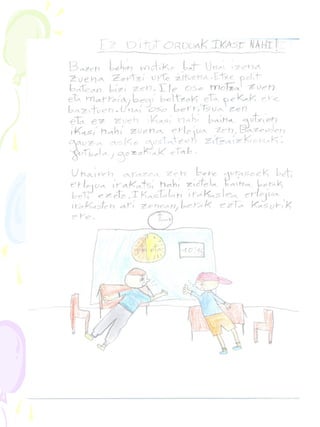 EZ DITUT ORDUAK IKASI NAHI!
Bazen behin mutiko bat Unai izena
zuena zortzi urte zituena. Etxe polit
batean bizi zen. Ile oso motza zuen
eta marroia, begi beltzak eta pekak ere
bazituen. Unai oso berritsua zen
eta ez zuen ikasi nahi baina gutxien
ikasi nahi zuena erlojua zen. Bazeuden
gauza asko gustatzen zitzaizkionak:
futbola, gozokiak etab.
Unairen arazoa zen bere gurasoek beti
erlojua irakatsi nahi ziotela baina berak
beti ezetz. Ikastolan irakaslea erlojua
irakasten ari zenean, berak ezta kasurik
ere.